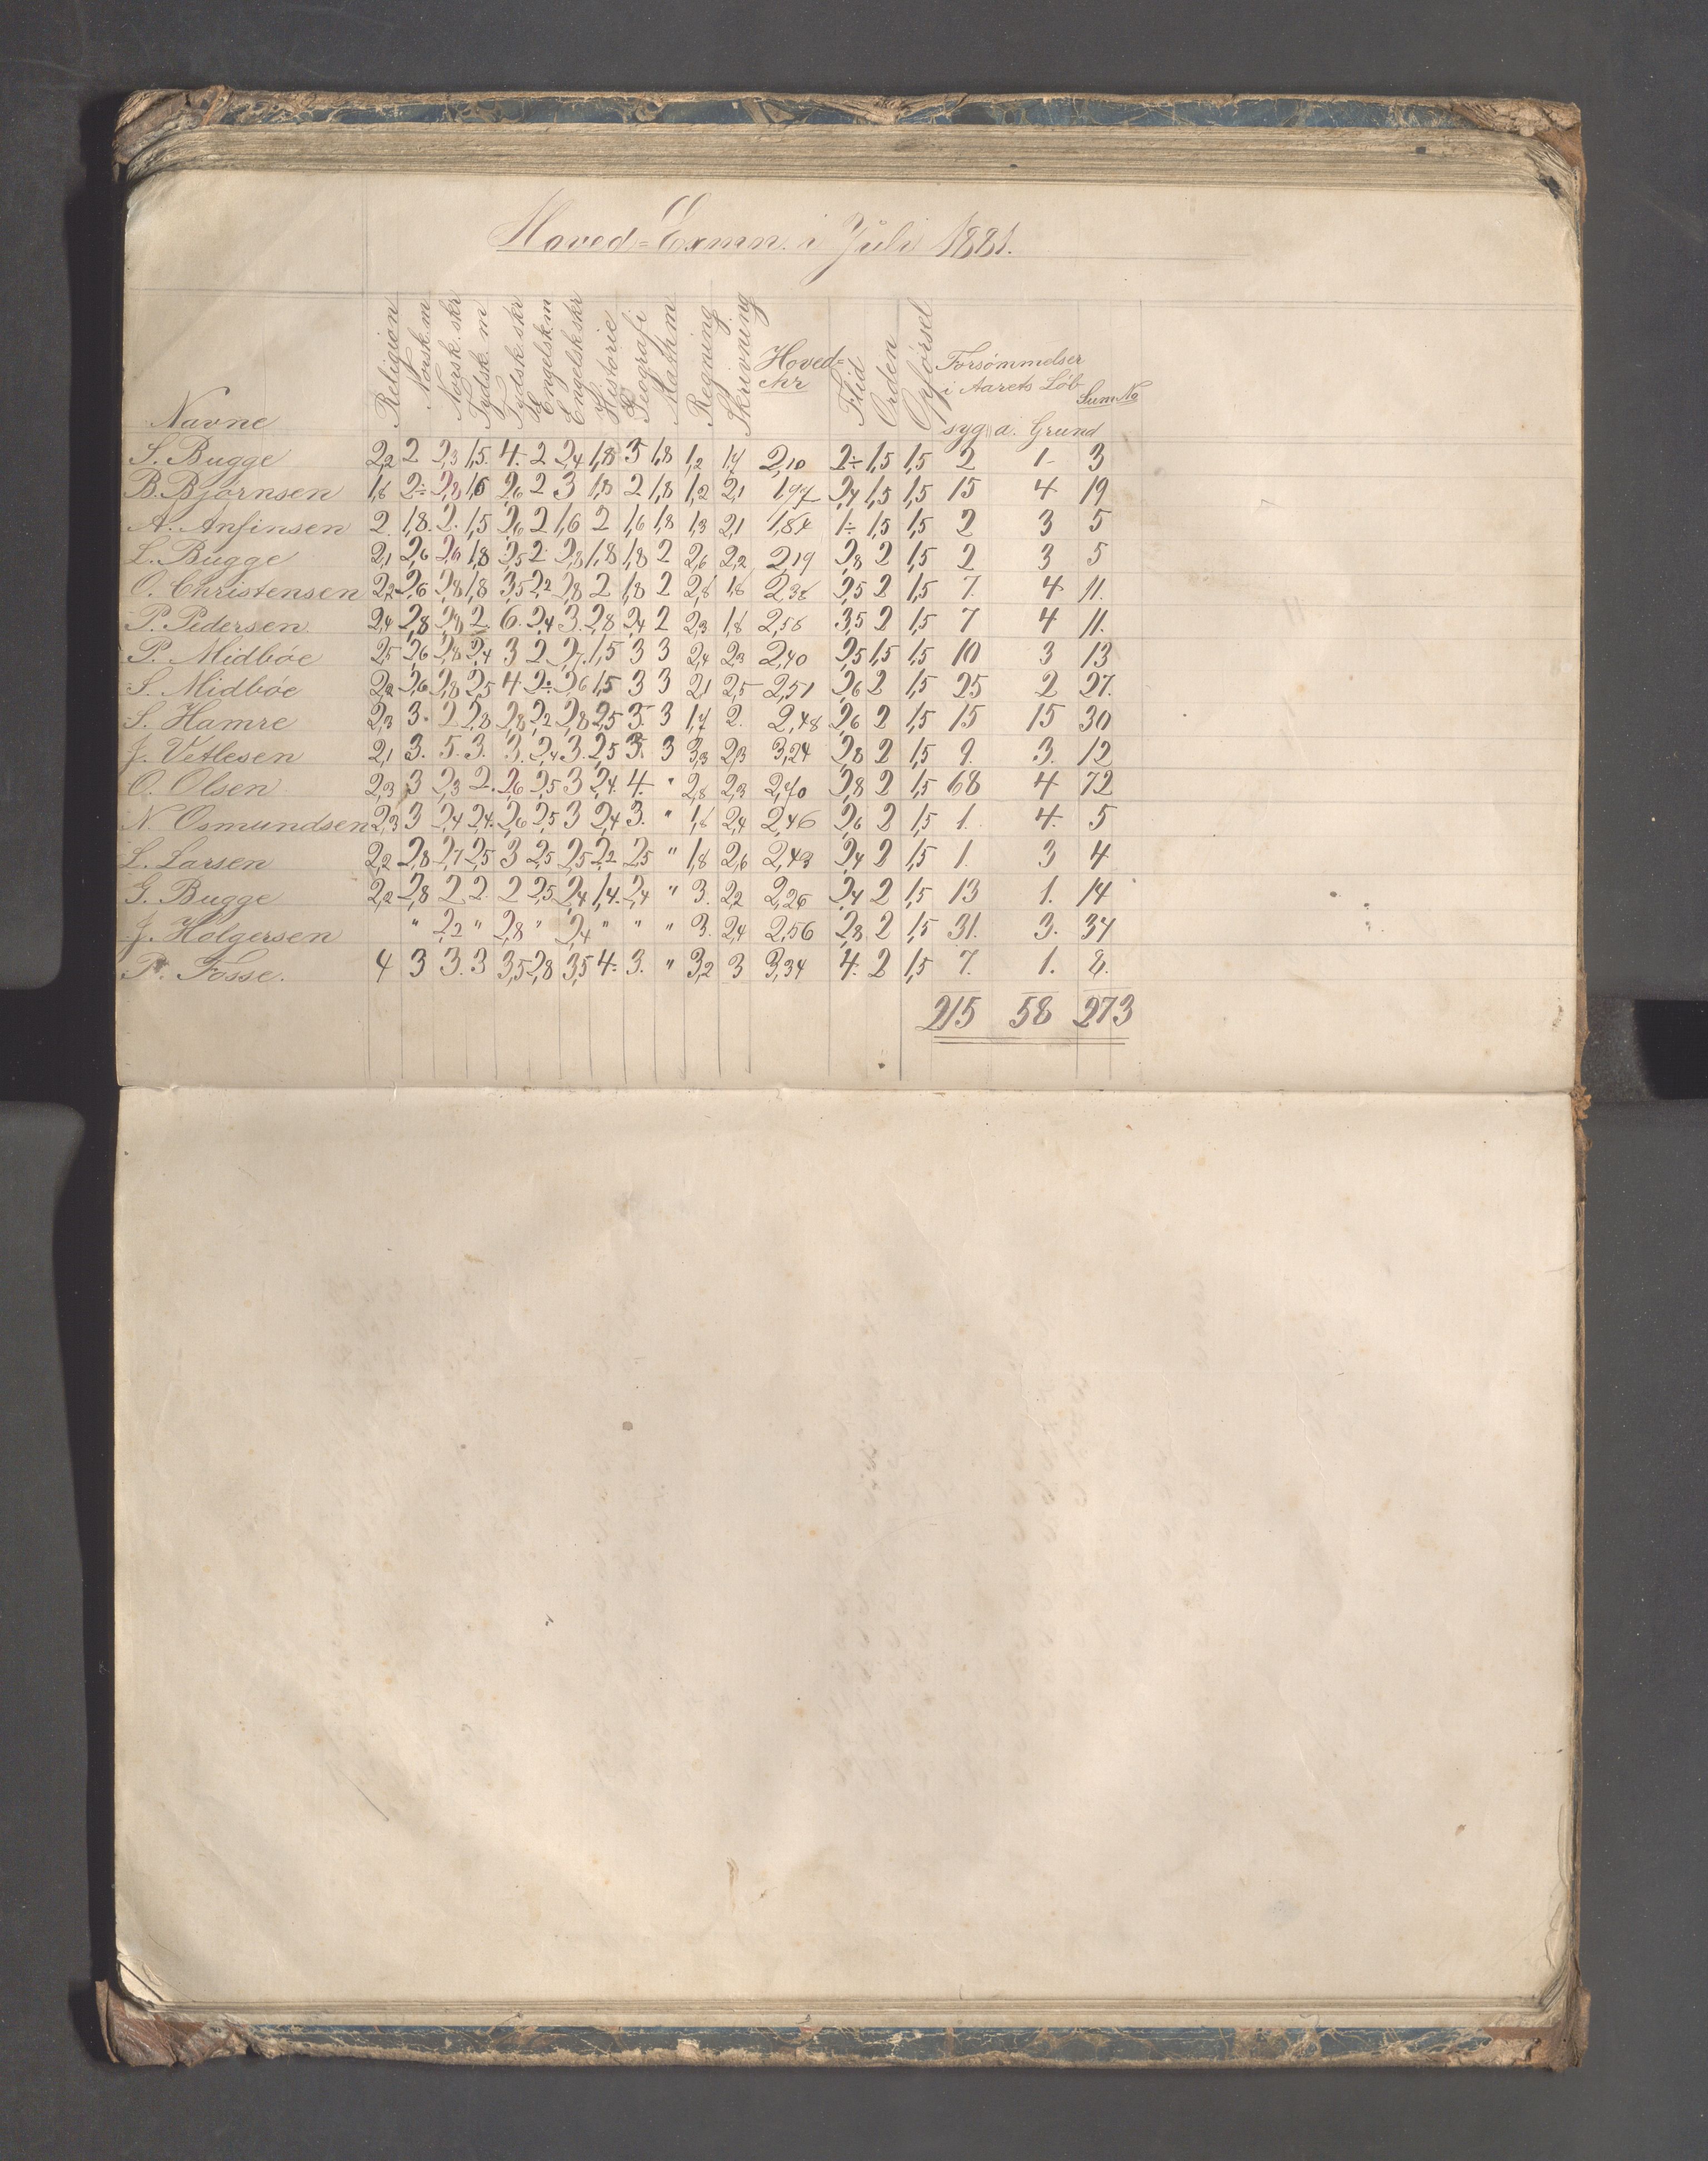 Hoved=Exmn. i Juli 1881.
Navne Religion Norsk.m Norsk.skr Tydsk.m Tydsk.skr Engelsk.m Engelsk.skr Historie Geografi Math.m Regning Skrivning Hoved= chr Flid Orden Opförsel Forsömmelser i Aarets Löb syg a. Grund Sum No
S. Bugge 2,2 2 2,3 1,5. 4. 2 2,4 1,8 3 1,8 1,2 1,7 2,10 2÷ 1,5 1,5 2 1 3
B. Björnsen 1,8 2÷ 2,8 1,6 2,6 2 3 1,8 2 1,8 1,2 2,1 1,97 2,4 1,5 1,5 15 4 19
A. Anfinsen 2. 1,8. 2. 1,5 2,6 2 1,6 2 1,6 1,8 1,3 2,1 1,84 1÷ 1,5 1,5 2 3 5
L. Bugge 2,1 2,6 2,6 1,8 2,5 2 2,8 1,8 1,8 2 2,6 2,2 2,19 2,8 2 1,5 2 3 5
O. Christensen 2,2 2,6 2,8 1,8 3,5 2,2 2,8 2 1,8 2 2,8 1,8 2,38 2,5 2 1,5 7. 4 11.
P. Pedersen 2,4 2,8 2,8 2. 6. 2,4 3. 2,8 2,4 2 2,3 1,8 2,58 3,5 2 1,5 7 4 11.
P. Midböe 2,5 2,6 2,8 2,4 3 2 2,7. 1,5 3 3 2,4 2,3 2,40 2,5 1,5 1,5 10 3 13
S. Midböe 2,2 2,6 2,8 2,5 4 2÷ 2,6 1,5 3 3 2,1 2,5 2,51 2,6 2 1,5 25 2 27.
S. Hamre 2,3 3. 2 2,8 2,8 2,2 2,8 2,5 3. 3 1,7 2. 2,48 2,6 2 1,5 15 15 30
J. Vetlesen 2,1 3. 5. 3. 3. 2,4 3. 2,5 3. 3 3,3 2,3 3,24 2,8 2 1,5 9. 3. 12
O. Olsen 2,3 3 2,3 2. 2,6 2,5 3 2,4. 4. " 2,8 2,3 2,70 2,8 2 1,5 68 4 72
N. Osmundsen 2,3 3 2,4 2,4. 2,6 2,5 3 2,4 3. " 1,8 2,4 2,46 2,6 2 1,5 1. 4. 5
L. Larsen 2,2 2,8 2,7 2,5 3 2,5 2,5 2,2 2,5 " 1,8 2,6 2,43 2,4 2 1,5 1. 3 4
G. Bugge 2,2 2,8 2 2 2 2,5 2,4 1,4. 2,4 " 3. 2,2 2,26 2,4 2 1,5 13 1. 14
J. Holgersen " 2,2 " 2,8 " 2,4 " " " 3. 2,4 2,56 2,8 2 1,5 31. 3. 34
P. Fosse. 4 3 3. 3 3,5 2,8 3,5 4. 3. " 3,2 3 3,34 4. 2 1,5 7. 1. 8.
215 58 273